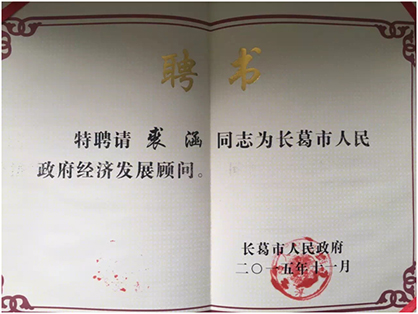 聘书
特聘请 裘涵 同志为长葛市人民
政府经济发展顾问。
长葛市人民政府
二〇一五年十一月